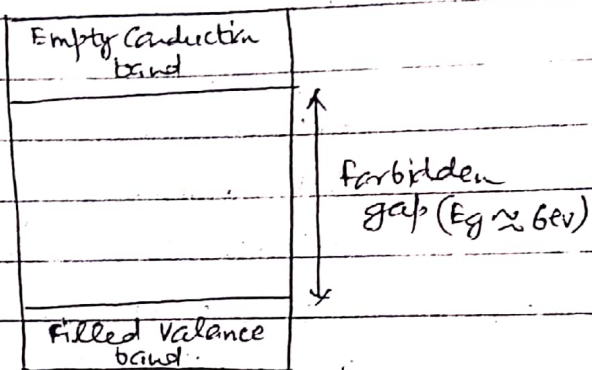 Empty Conduction
band
forbidden
gap (Eg ≈ 6ev)
Filled Valance
band.